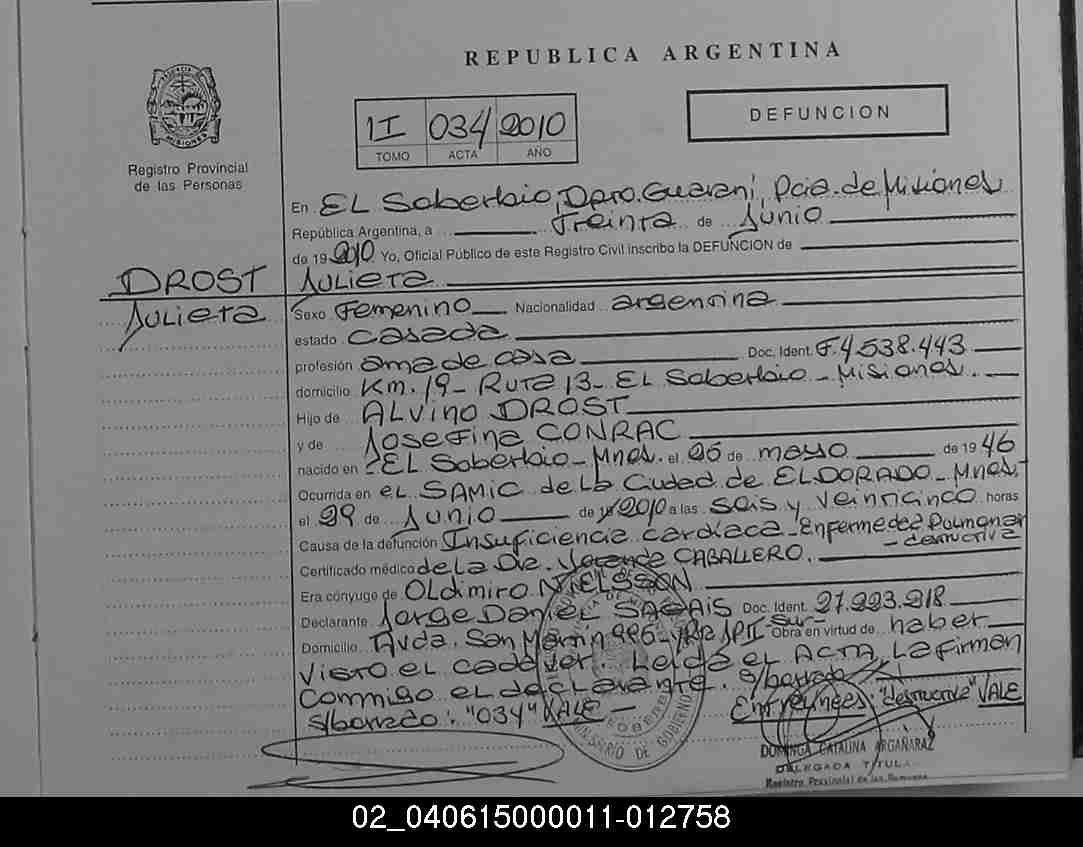 REPUBLICA ARGENTINA
1I 034 2010
TOMO ACTA AÑO
DEFUNCION
Registro Provincial
de las Personas
En EL Soberbio, Dpro. Guarani, Pcia. de Misiones
República Argentina, a Treinta de Junio
de 19 2010 Yo, Oficial Público de este Registro Civil inscribo la DEFUNCION de
DROST Julieta
Julieta
Sexo Femenino Nacionalidad argentina
estado casada
profesión ama de casa Doc. Ident. F.4.538.443
domicilio Km. 19 - Ruta 13 - EL Soberbio - Misiones.
Hijo de ALVINO DROST
y de Josefina CONRAC
nacido en EL Soberbio - Mnes. el 26 de mayo de 1946
Ocurrida en el SAMIC de La Ciudad de ELDORADO - Mnes.-
el 29 de Junio de 2010 a las seis y veinticinco horas
Causa de la defunción Insuficiencia cardíaca - Enfermedad Pulmonar
- destructiva
Certificado médico de la Dra. CABALLERO.
Era cónyuge de Oldimiro NIELSSON.
Declarante Jorge Daniel Doc. Ident. 27.223.218
Domicilio Avda. San Martín Obra en virtud de haber
visto el cadáver. Leída el ACTA, La firman
conmigo el declarante. s/borrado
s/borrado: "034" VALE - Entrelíneas: "destructiva" VALE
MINISTERIO DE GOBIERNO
DOMINGA CATALINA ARGAÑARAZ
DELEGADA TITULAR
Registro Provincial de las Personas
02_040615000011-012758